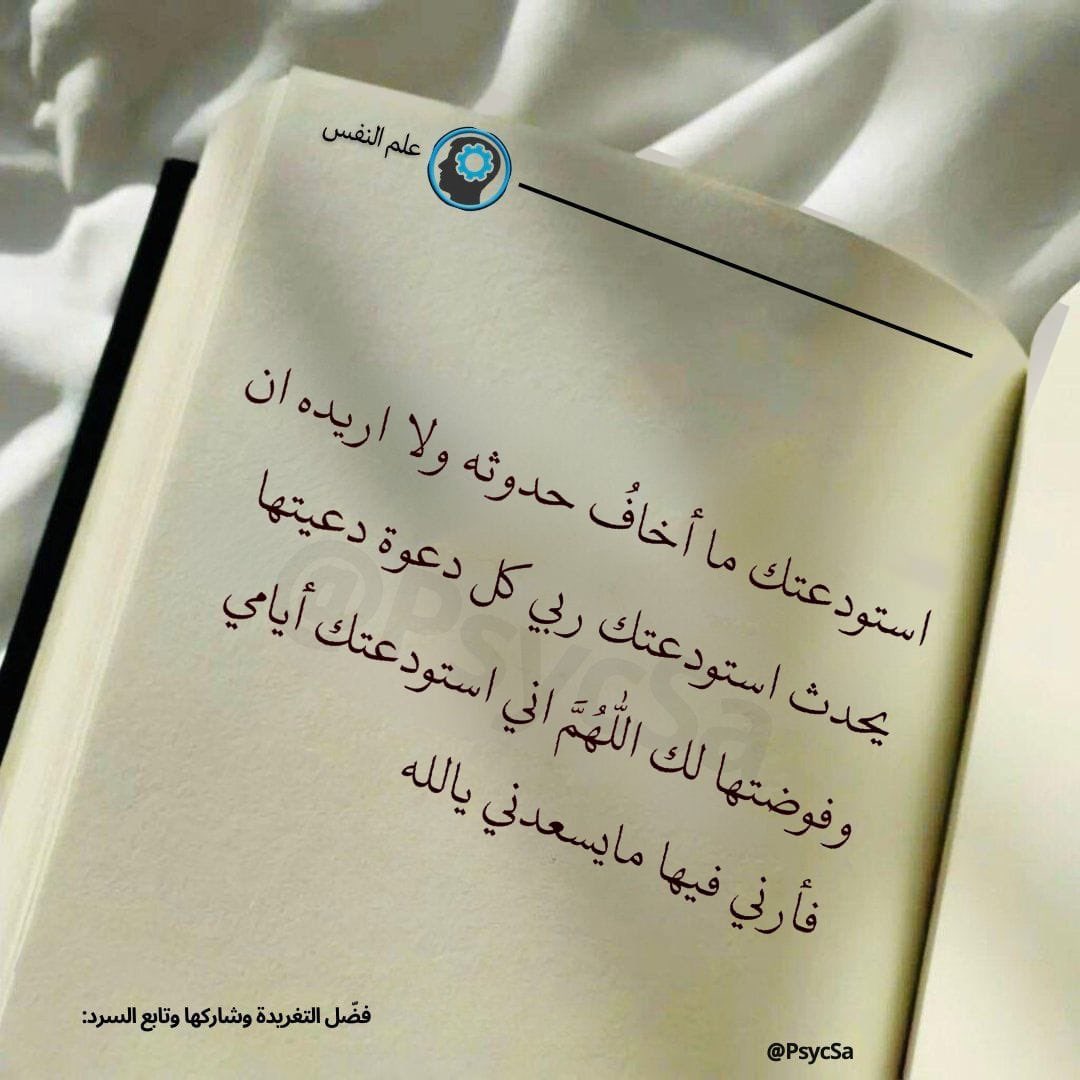 علم النفس
استودعتك ما أخافُ حدوثه ولا اريده ان
يحدث استودعتك ربي كل دعوة دعيتها
وفوضتها لك اللّٰهُمَّ اني استودعتك أيامي
فأرني فيها مايسعدني يالله
@PsycSa
فضّل التغريدة وشاركها وتابع السرد:
@PsycSa